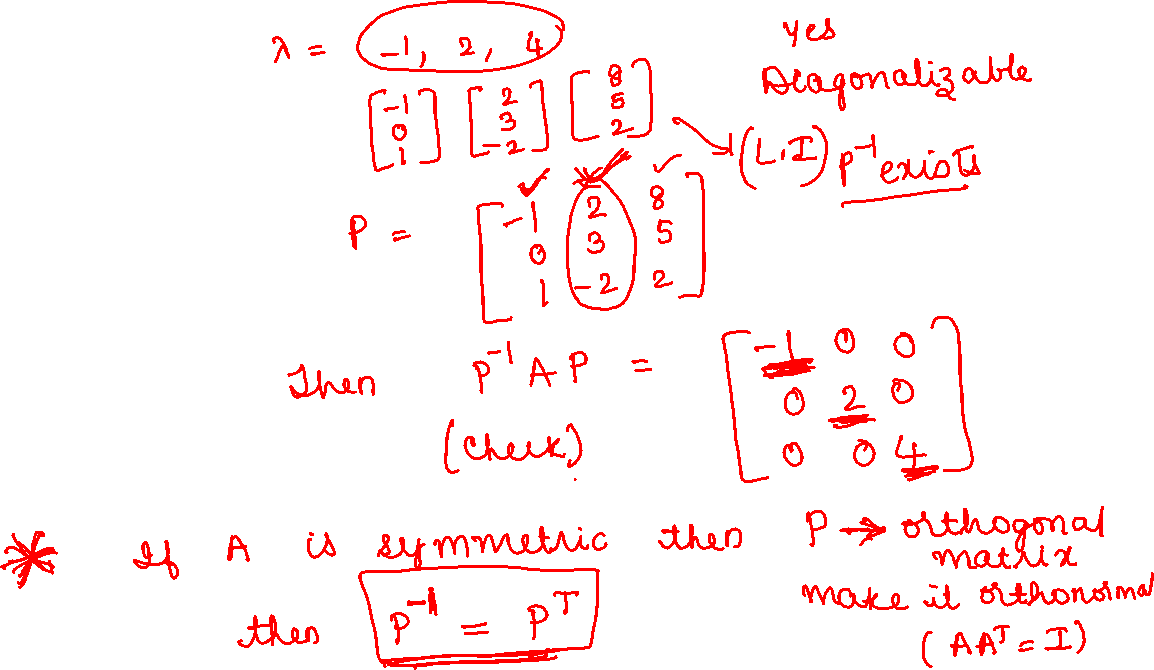 λ = -1, 2, 4
yes
Diagonalizable
[-1 0 1] [2 3 -2] [8 5 2]
(L.I) P⁻¹ exists
P = [-1 2 8
0 3 5
1 -2 2]
Then P⁻¹ A P = [-1 0 0
0 2 0
0 0 4]
(Check)
* If A is symmetric then P → orthogonal
matrix
make it orthonormal
then P⁻¹ = Pᵀ
(AAᵀ = I)